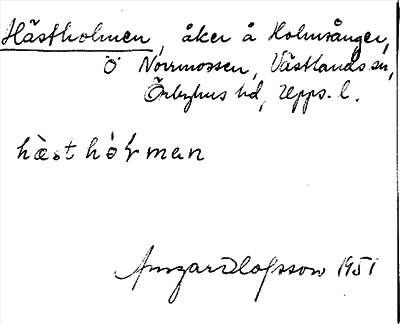 Hästholmen, åker å Holmsånger,
Ö Norrmossen, Västlands sn,
Örbyhus hd, Upps. l.
hæst hòłman
Ansgar Olofsson 1951